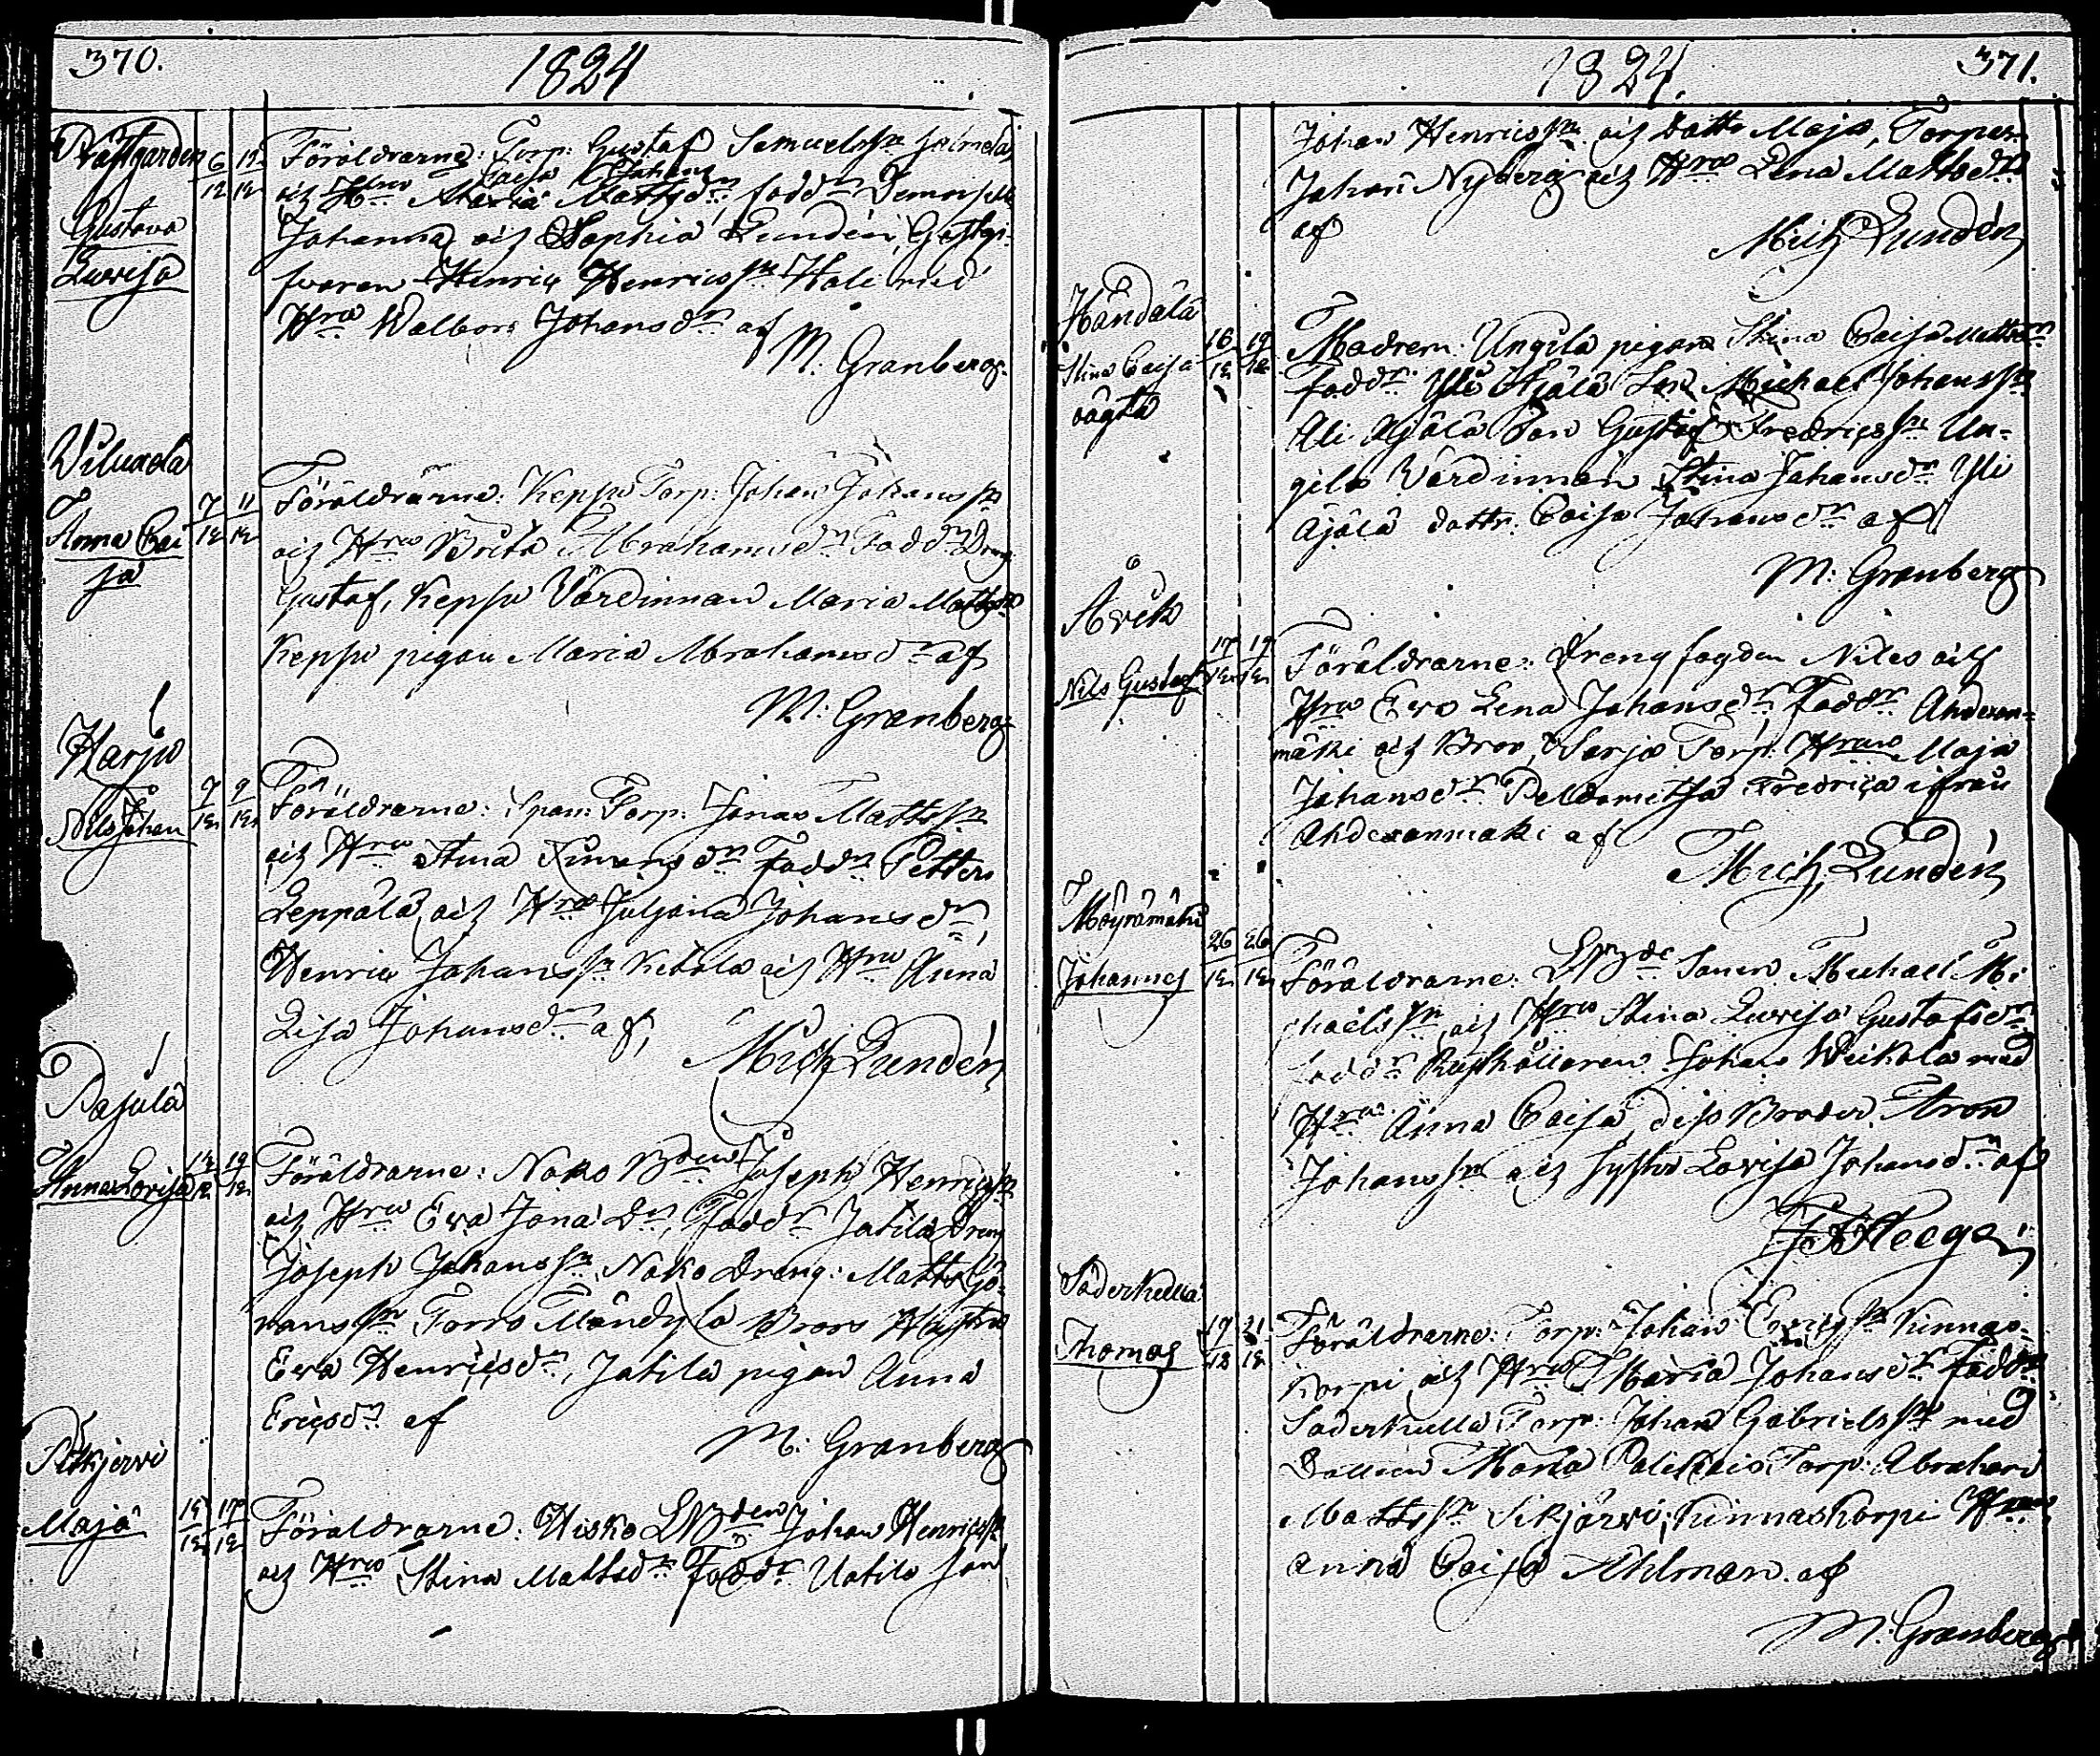 370.
1824
Prästgården
6/12 12/12
Gustava
Lovisa
Föräldrarne: Torp: Gustaf Samuelsson
och Hru Caisa Johans
Maria Mattsdr, faddr Demoiselle
Johanna och Sophia Lundén, Gästgi-
fvaren Henric Henricsson Hali med
Hru Walborg Johansdr af
M: Granberg
Wiluxela
7/12 11/12
Anna Cai
sa
Föräldrarne: Keppo Torp: Johan Johansson
och Hru Brita Abrahamsdr Faddr Dreng
Gustaf, Keppo Värdinnan Maria Mattsdr
Keppo pigan Maria Abrahamsdr af
M: Granberg
Harju
7/12 9/12
Nils Johan
Föräldrarne: Torp: Jonas Mattsson
och Hru Stina Simonsdr Faddr Petter
Leppälä och Hru Juljana Johansdr,
Henric Johansson Ketola och Hru Anna
Lisa Johansdr af,
Mich Lundén
Pajula
Anna Lovisa
Föräldrarne: Noko Bden Joseph Henricsson
och Hru Eva Jona Dr, Faddr Jatila Dreng
Joseph Johansson, Noko Dreng: Matts Jo-
hansson Torro Mändylä Brors Hustru
Eva Henricsdr, Jatila pigan Anna
Ericsdr af
M: Granberg
Pitkjerwi
Maja
17/12
Föräldrarne: Hisko LBden Johan Henricsson
och Hru Stina Mattsdr Faddr Uotila son
1824.
371.
Johan Henricsson och dottr Maja, Torpar
Johan Nyberg och Hru Lena Mattsdr
af
Mich Lundén
Händälä
16/12 19/12
Stina Caisa
oägta
Modren: Ungila pigan Stina Caisa Mattsdr
Faddr: Yli Äjälä Son Michael Johansson
Ali Äjälä Son Gustaf Fredricsson Un-
gila Värdinnan Stina Johansdr Yli
Äjälä dottr. Caisa Johansdr af
M: Granberg
Åvik
17/12 19/12
Nils Gustaf
Föräldrarne: Drengfogden Niles och
Hru Eva Lena Johansdr, Faddr Ahdexan-
mäki och Bror, Sarjo Torp: Hru Maja
Johansdr Peldometsä Fredrica ifrån
Ahdexanmäki af
Mich, Lundén
Moyramäki
26/12 26/12
Johannes
Föräldrarne: LBde Sonen Michael Mi
chaelsson, och Hru Stina Lovisa Gustafsdr
faddr Rusthållaren Johan Weikola med
Hru Anna Caisa, dess Broder Aron
Johansson och Syster Lovisa Johansdr af
Söderkulla
17/12 21/12
Thomas
Föräldrarne: Torp: Johan Ericsson Kinnas-
korpi och Hru Maria Johansdr Faddr
Söderkulla Torp: Johan Gabrielsson med
Dottren Maria Palikais Torp: Abraham
Mattsson Sikjärvi, Kinnaskorpi Hru
Anna Caisa Ahlman af
M. Granberg